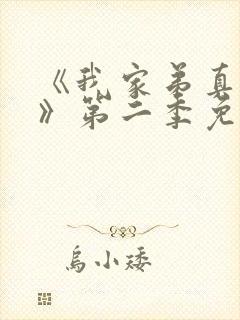 《我家弟真
》第二季免
乌小矮